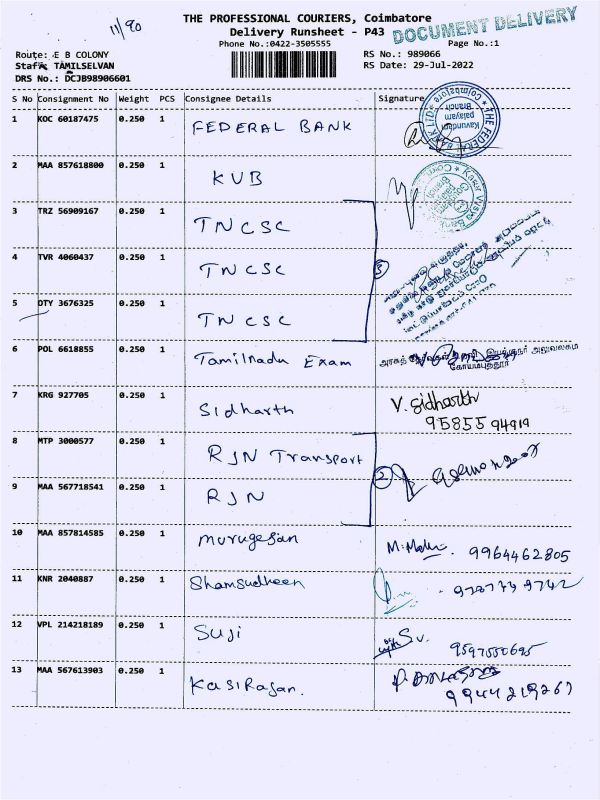 11/90
THE PROFESSIONAL COURIERS, Coimbatore
DOCUMENT DELIVERY
Delivery Runsheet - P43
Phone No.:0422-3505555
Page No.:1
Route: E B COLONY
RS No.: 989066
Staff: TAMILSELVAN
RS Date: 29-Jul-2022
DRS No.: DCJB98906601
S No Consignment No Weight PCS Consignee Details Signature
1 KOC 60187475 0.250 1 FEDERAL BANK
THE FEDERAL BANK LTD. Coimbatore
Kavundampalayam Branch
2 MAA 857618800 0.250 1 KVB
Karur Vysya Bank
3 TRZ 56909167 0.250 1 TNCSC
4 TVR 4060437 0.250 1 TNCSC
3
5 DTY 3676325 0.250 1 TNCSC
6 POL 6618855 0.250 1 Tamilnadu Exam
இயக்குநர் அலுவலகம்
கோயம்புத்தூர்
7 KRG 927705 0.250 1 Sidharth V. Sidharth
95855 94919
8 MTP 3000577 0.250 1 RJN Transport
2
9 MAA 567718541 0.250 1 RJN
10 MAA 857814585 0.250 1 Murugesan 9964462805
11 KNR 2040887 0.250 1 Shamsudheen
12 VPL 214218189 0.250 1 Suji
13 MAA 567613903 0.250 1 KasiRajan.